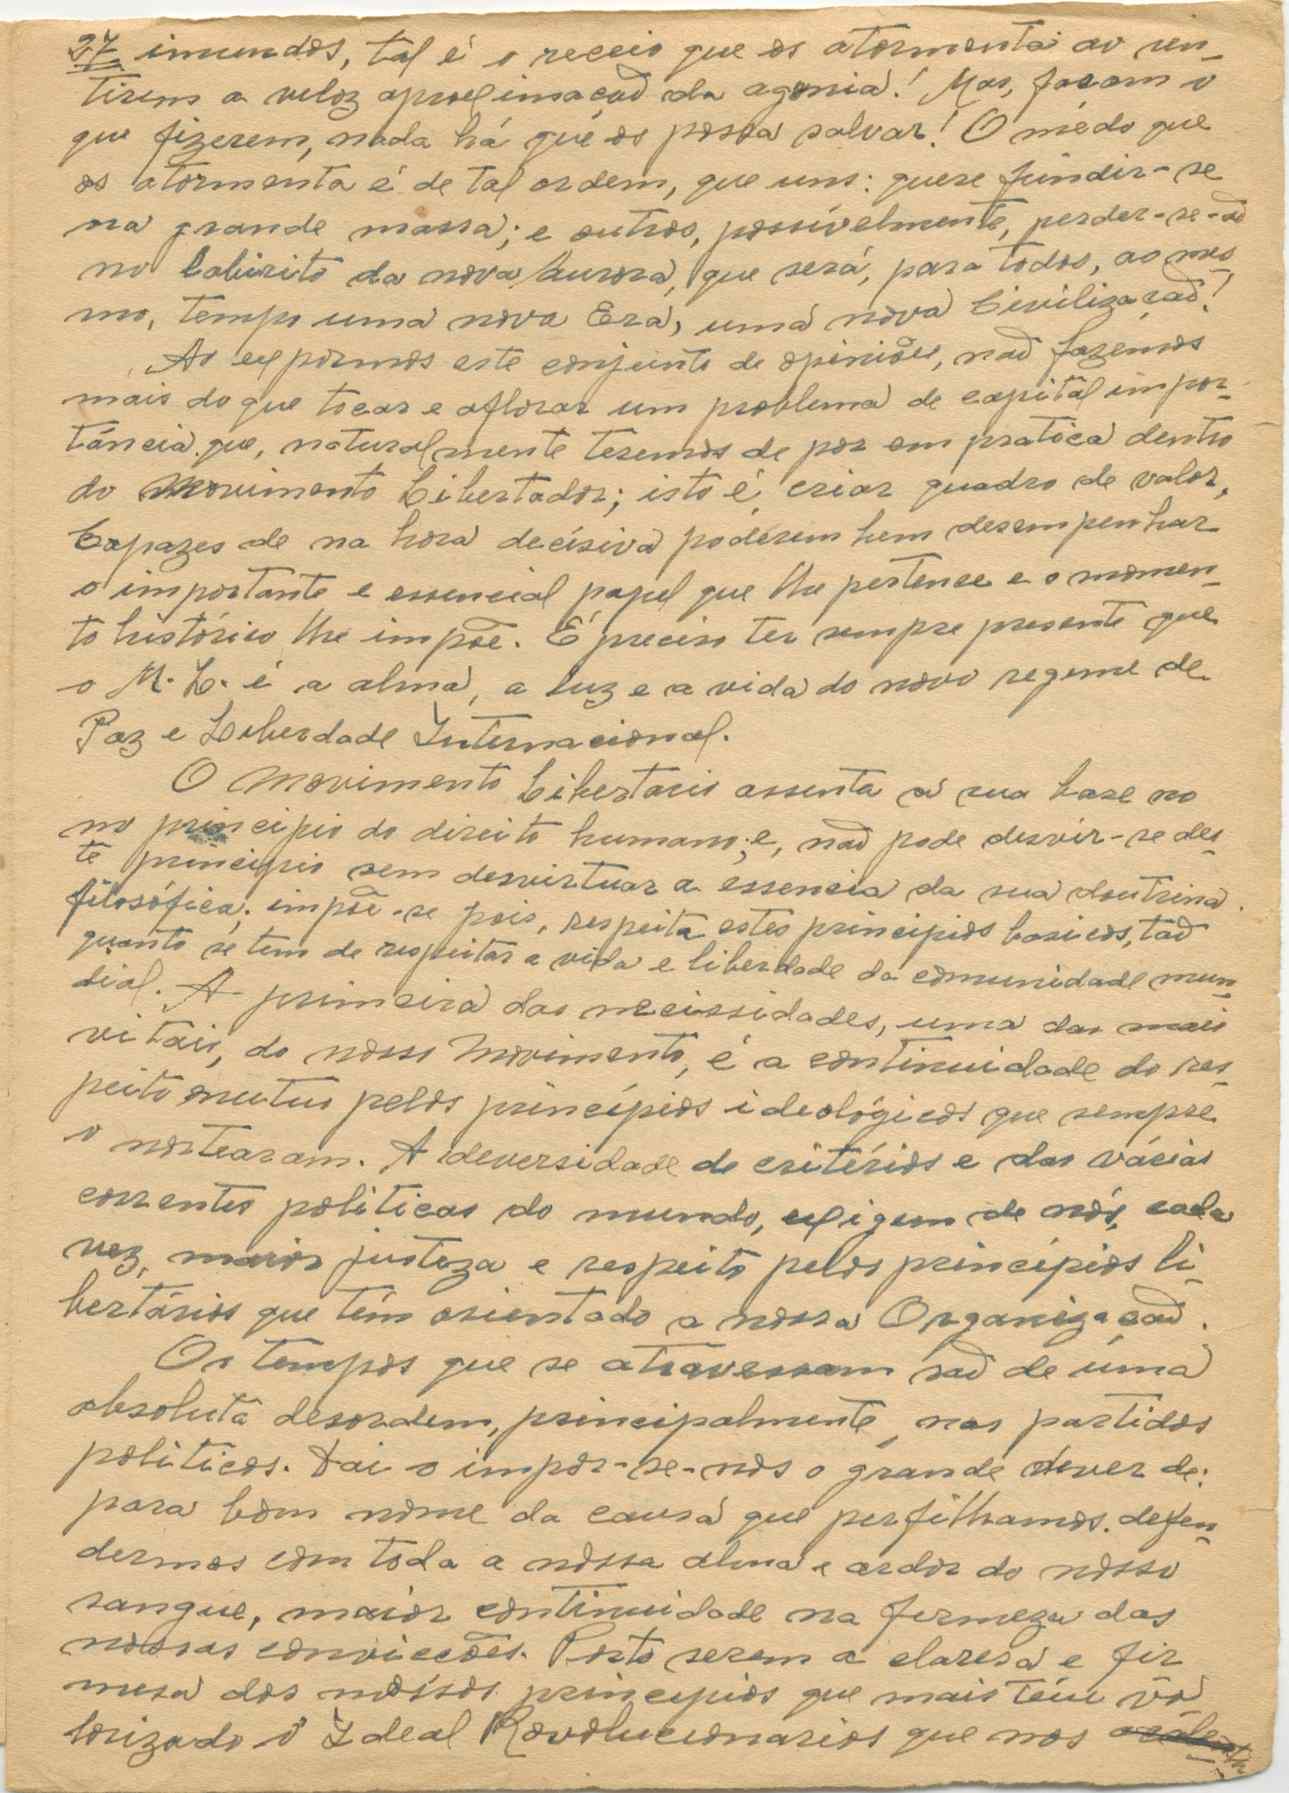 27 imundos, tal é o receio que os atormenta ao sen-
tirem a veloz aproximação da agonia! Mas, façam o
que fizerem, nada há que os possa salvar! O mêdo que
os atormenta é de tal ordem, que uns: quere fundir-se
na grande massa; e outros, possívelmente, perder-se-ão
no Labirito da nova Aurora, que será, para todos, ao mes-
mo, tempo uma nova Era, uma nova Civilização!
Ao expormos este conjunto de opiniões, não fazemos
mais do que tocar e aflorar um problema de capital impor-
tância que, naturalmente teremos de por em pratica dentro
do Movimento Libertador; isto é, criar quadro de valor,
Capazes de na hora decisiva poderem bem desempenhar
o importante e essencial papel que lhe pertence e o momen-
to histórico lhe impõe. É preciso ter sempre presente que
o M. L. é a alma, a luz e a vida do novo regime de
Paz e Liberdade Internacional.
O Movimento Libertario assenta a sua base no
no principio do direito humano; e, não pode desvir-se des-
te principio sem desvirtuar a essencia da sua doutrina
filosófica; impõe-se pois, respeita estes principios basicos, tão
quanto se tem de respeitar a vida e liberdade da comunidade mun-
dial. A primeira das necissidades, uma das mais
vitais, do nosso Movimento, é a continuidade do res-
peito mutuo pelos princípios ideológicos que sempre
o nortearam. A deversidade de critérios e das várias
correntes politicas do mundo, exigem de nós, cada
vez, maior justeza e respeito pelos princípios li-
bertários que têm orientado a nossa Organização.
Os tempos que se atravessam são de uma
absoluta desordem, principalmente, nos partidos
politicos. Dai o impor-se-nos o grande dever de:
para bom nome da causa que perfilhamos. defen-
dermos com toda a nossa alma e ardor do nosso
sangue, maior continuidade na firmeza das
nossas convicções. Posto serem a claresa e fir
mesa dos nossos principios que mais têm va-
lorizado o Ideal Revolucionarios que nos